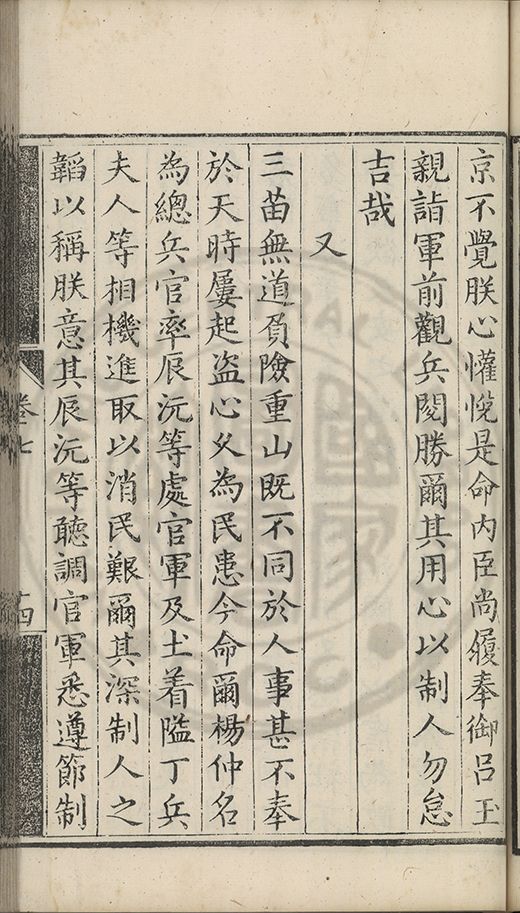 京不覺朕心懽悅是命內臣尚履奉御呂玉
親詣軍前觀兵閱勝爾其用心以制人勿怠
吉哉
又
三苗無道負險重山旣不同於人事甚不奉
於天時屢起盜心乆為民患今命爾楊仲名
為總兵官率辰沅等處官軍及土着隘丁兵
夫人等相機進取以消民艱爾其深制人之
韜以稱朕意其辰沅等聽調官軍悉遵節制
卷七
十四